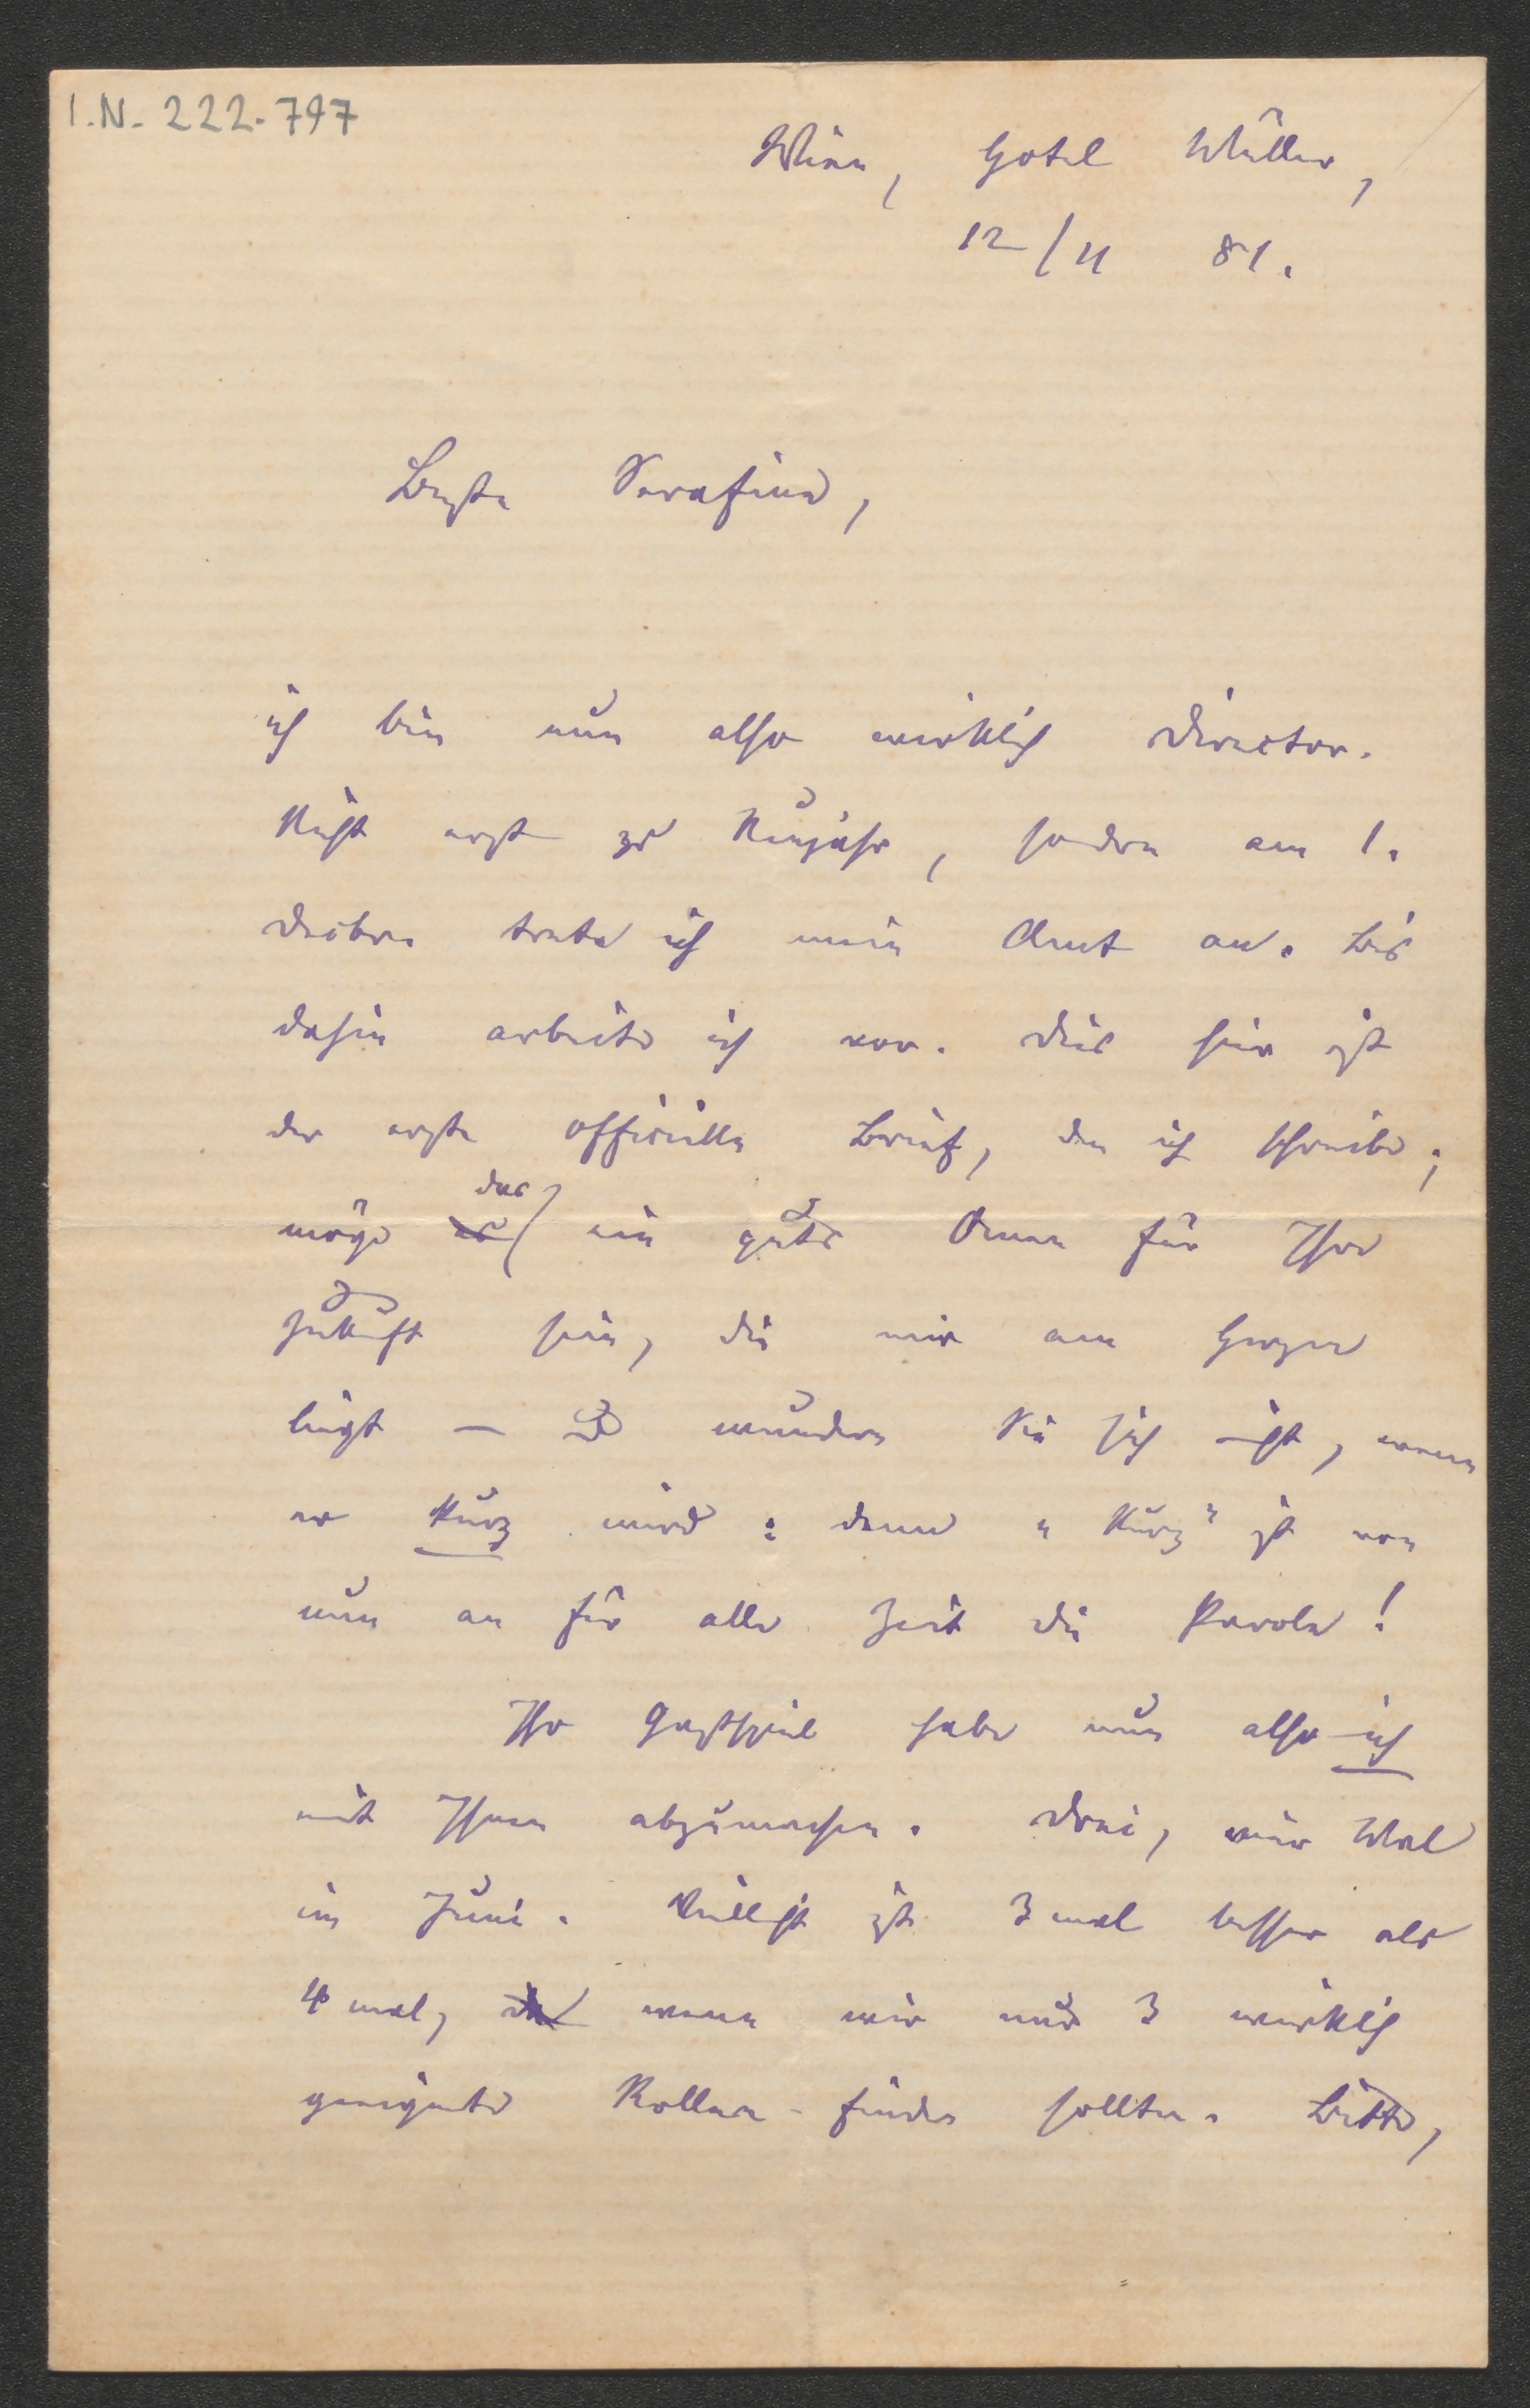 I.N. 222.797
Wien, Hotel Müller,
12/11 81.
Beste Serafine,
ich bin nun also wirklich Director.
Nicht erst zu Neujahr, sondern am 1.
Decbr. trete ich mein Amt an. Bis
dahin arbeite ich vor. Dies hier ist
der erste officielle Brief, den ich schreibe;
möge es das ein gutes Omen für Ihre
Zukunft sein, die mir am Herzen
liegt — u wundern Sie sich nicht, wenn
er kurz wird: denn „kurz" ist von
nun an für alle Zeit die Parole!
Ihr Gastspiel habe nun also ich
mit Ihnen abzumachen. Drei, vier Mal
im Juni. Vielleicht ist 3 mal besser als
4 mal, wenn wir nur 3 wirklich
geeignete Rollen finden sollten. Bitte,